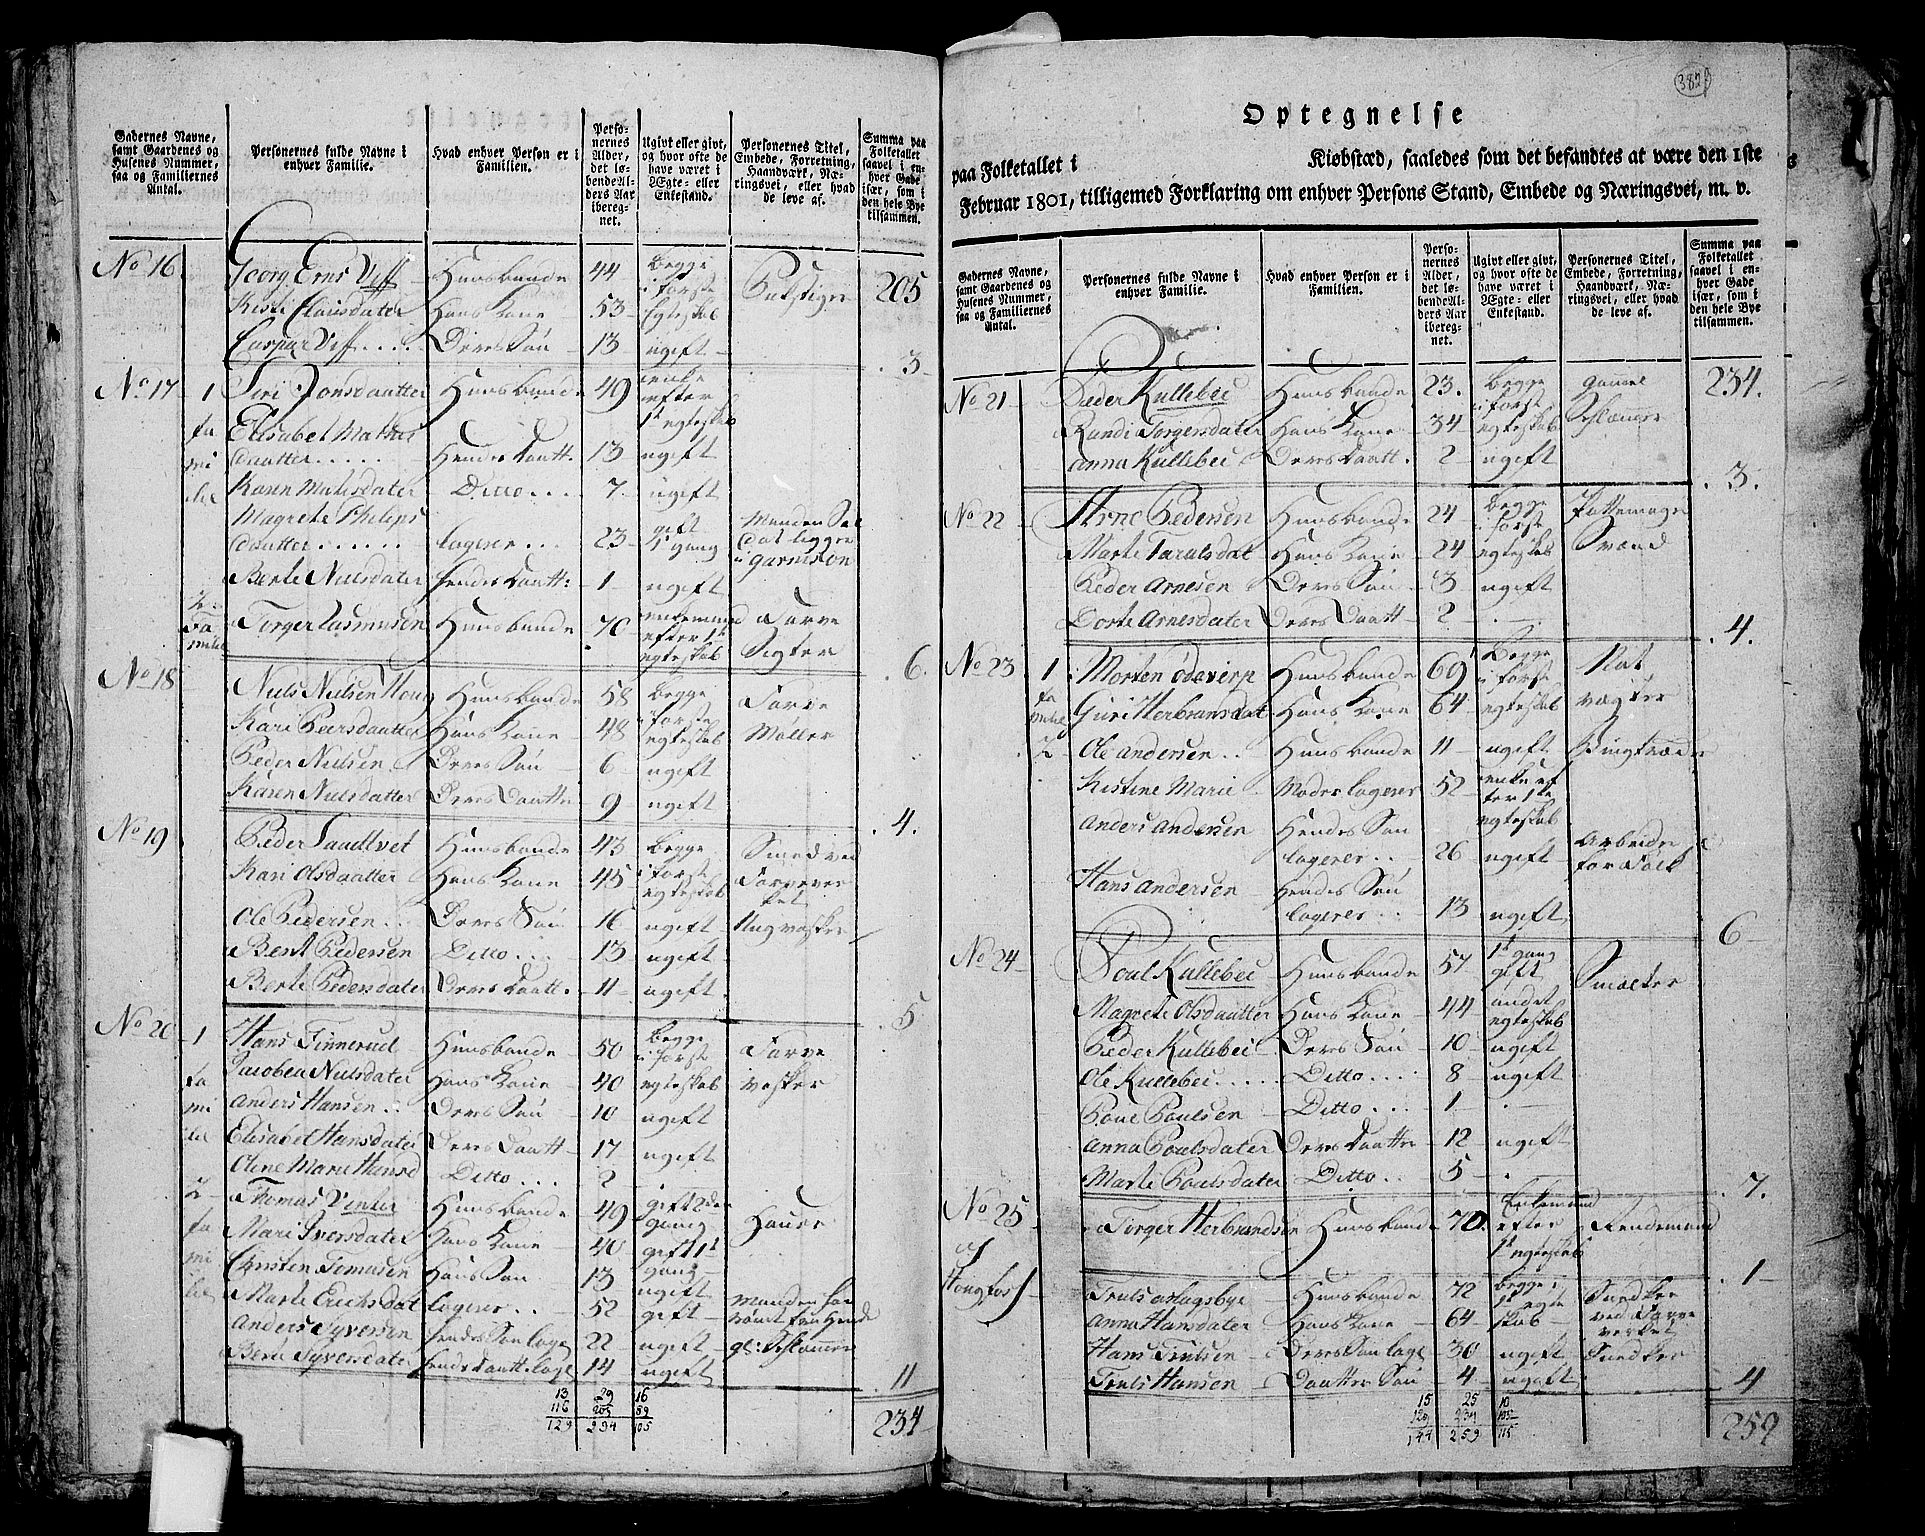 Gadernes Navne,
samt Gaardenes og
Husenes Nummer,
saa og Familiernes
Antal.
Personernes fulde Navne i
enhver Familie.
Hvad enhver Person er i
Familien.
Perso-
nernes
Alder,
det lø-
bende Al-
ders Aar
ibereg-
net.
Ugivt eller givt,
og hvor ofte de
have været i
Ægte- eller
Enkestand.
Personernes Titel,
Embede, Forretning,
Haandværk, Næ-
ringsvei, eller hvad
de leve af.
Summa paa
Folketallet
saavel i en-
hver Gade
især, som i
den hele Bye
tilsammen.
No 16 Georg Erns Uff Huusbonde 44 begge i første Egteskab 205
Kisti Clausdater Hans Kone 53
Caspar Uff Deres Søn 13 ugift 3
No 17 1 familie Siri Jonsdaatter Huusbonde 49 enke efter 1t egteskab
Elisabet Mathis
daatter Hendes Daatt. 13 ugift
Karen Mathisdater Ditto 7 ugift
Magrete Philips
daatter logerer 23 gift 1 gang Manden Sol
dat ligger i garnison
Berte Nielsdater hendes Daatt: 1 ugift
2 Familie Torger Rasmusen Huusbonde 70 enkemand efter 1t egteskab Farve Sigter 6.
No 18 Niels Nielsen Houg Huusbonde 58 begge i første egteskab Farve Møller
Kari Peersdaatter Hans Kone 48
Peder Nielsen Deres Søn 6 ugift
Karen Nielsdatter Deres Daatter 9 ugift 4.
No 19 Peder Saadtvet Huusbonde 43 begge i første egteskab Smed ved Farvever
ket
Kari Olsdaatter Hans Kone 45
Ole Pedersen Deres Søn 16 ugift
Bent Pedersen Ditto 13 ugift
Berte Pedersdater Deres Daatt. 11 ugift 5
No 20 1 familie Hans Finnerud Huusbonde 50 begge i første egteskab Farve vasker
Jacobea Nielsdater Hans Kone 40
Anders Hansen Deres Søn 10 ugift
Elisabet Hansdater Deres Daatt 17 ugift
Olene Marie Hansd Ditto 2
2 familie Thomas Venter Huusbonde 49 gift 2den gang Hauer
Mari Iversdater Hans Kone 40 gift 1t gang
Christen Tomasen Hans Søn 13 ugift
Marte Erichsdat logerer 52 gift Manden
rømt fra hende
Anders Syversen hendes Søn loge 22 ugift
Berte Syversdater hendes Daatt. loge 14 ugift 11
13 29 16
116 205 89
129 234 105 234
382
Optegnelse
paa Folketallet i Kiøbstæd, saaledes som det befandtes at være den 1ste
Februar 1801, tilligemed Forklaring om enhver Persons Stand, Embede og Næringsvei, m. v.
Gadernes Navne,
samt Gaardenes og
Husenes Nummer,
saa og Familiernes
Antal.
Personernes fulde Navne i
enhver Familie.
Hvad enhver Person er i
Familien.
Perso-
nernes
Alder,
det lø-
bende Al-
ders Aar
ibereg-
net.
Ugivt eller givt,
og hvor ofte de
have været i
Ægte- eller
Enkestand.
Personernes Titel,
Embede, Forretning,
Haandværk, Næ-
ringsvei, eller hvad
de leve af.
Summa paa
Folketallet
saavel i en-
hver Gade
især, som i
den hele Bye
tilsammen.
No 21 Peder Kullebec Huusbonde 23. begge i første egteskab 234.
Randi Torgersdater Hans Kone 34
Anna Kullebec Deres Daatt. 2 ugift 3.
No 22 Arne Pedersen Huusbonde 24 begge i første egteskab Pottemager Svend
Marte Tarulsdat Hans Kone 24
Peder Arnesen Deres Søn 3 ugift
Dorte Arnesdater Deres Daatt 2 4.
No 23 1 familie Morten Ødeverp Huusbonde 69 Begge i første egteskab Nat vægter
Guri Herbransdat Hans Kone 64
2 Ole Andersen Huusbonde 11 ugift
Kistine Marie Moder logerer 52 enke ef
ter 1ste
egteskab
Anders Andersen Hendes Søn
logerer 26 ugift Arbeider
for Folk
Hans Andersen Hendes Søn
logerer 13 ugift 6
No 24 Poul Kullebec Huusbonde 57 1t gang gift Smelter
Magrete Olsdaatter Hans Kone 44 andet egteskab
Peder Kullebec Deres Søn 10 ugift
Ole Kullebec Ditto 8 ugift
Poue Poulsen Ditto 1
Anna Poulsdater Deres Daatter 12 ugift
Marte Poulsdater Ditto 5 7.
No 25 Torger Herbrandsen Huusbonde 70. Enkemand efter 1t egteskab 1
Truls Aslagsbye Huusbonde 72 begge i 1t egte
skab Snedker
ved Farve
verket
Anna Hansdater Hans Kone 64
Hans Trulsen Deres Søn loge 30 ugift Snedker
Truls Hansen Daatter Søn 4 ugift 4
15 25 10
129 234 105
144 259 115 259